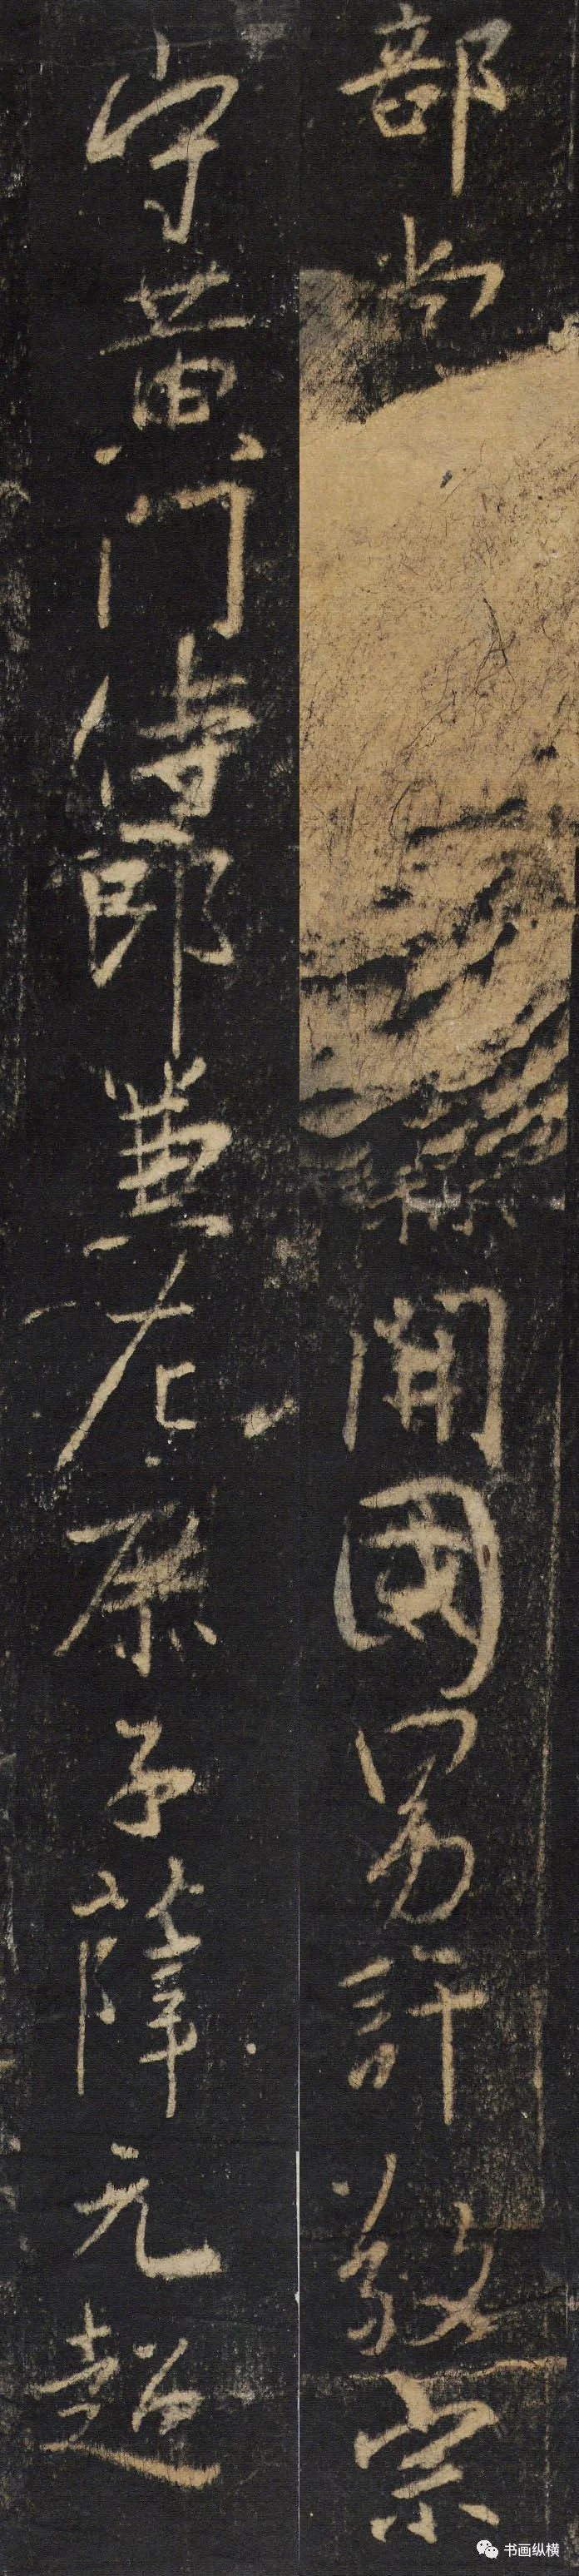 部尚開國男許敬宗
守黃門侍郎兼左庶子薛元超
书画纵横